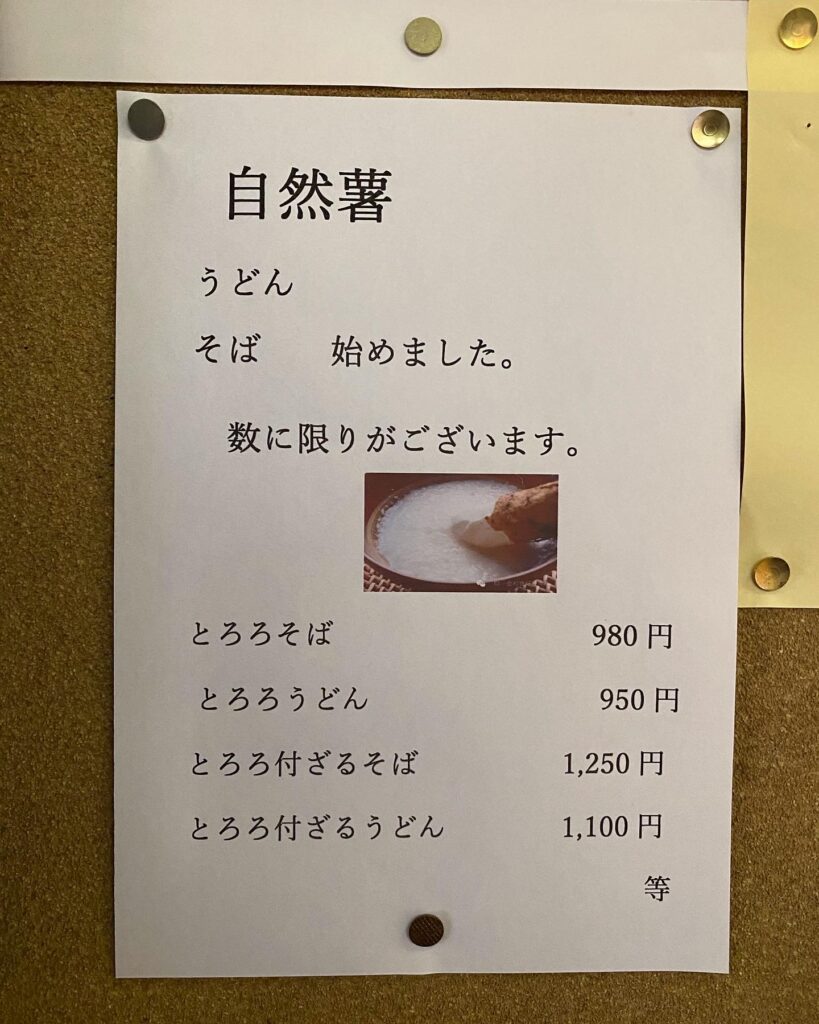 自然薯
うどん
そば 始めました。
数に限りがございます。
とろろそば 980 円
とろろうどん 950 円
とろろ付ざるそば 1,250 円
とろろ付ざるうどん 1,100 円
等